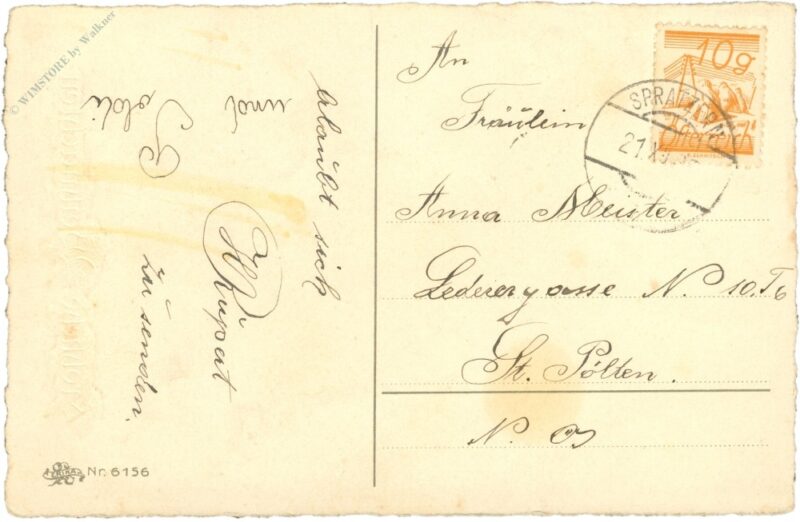 © WIMSTORE by Walkner
erlaubt sich
H. Rupert
und Poldi
zu senden.
Nr. 6156
An
Fräulein
Anna Meister
Lederergasse N. 10. T 6
St. Pölten.
N. Oe
10g
SPRATZERN
21.X